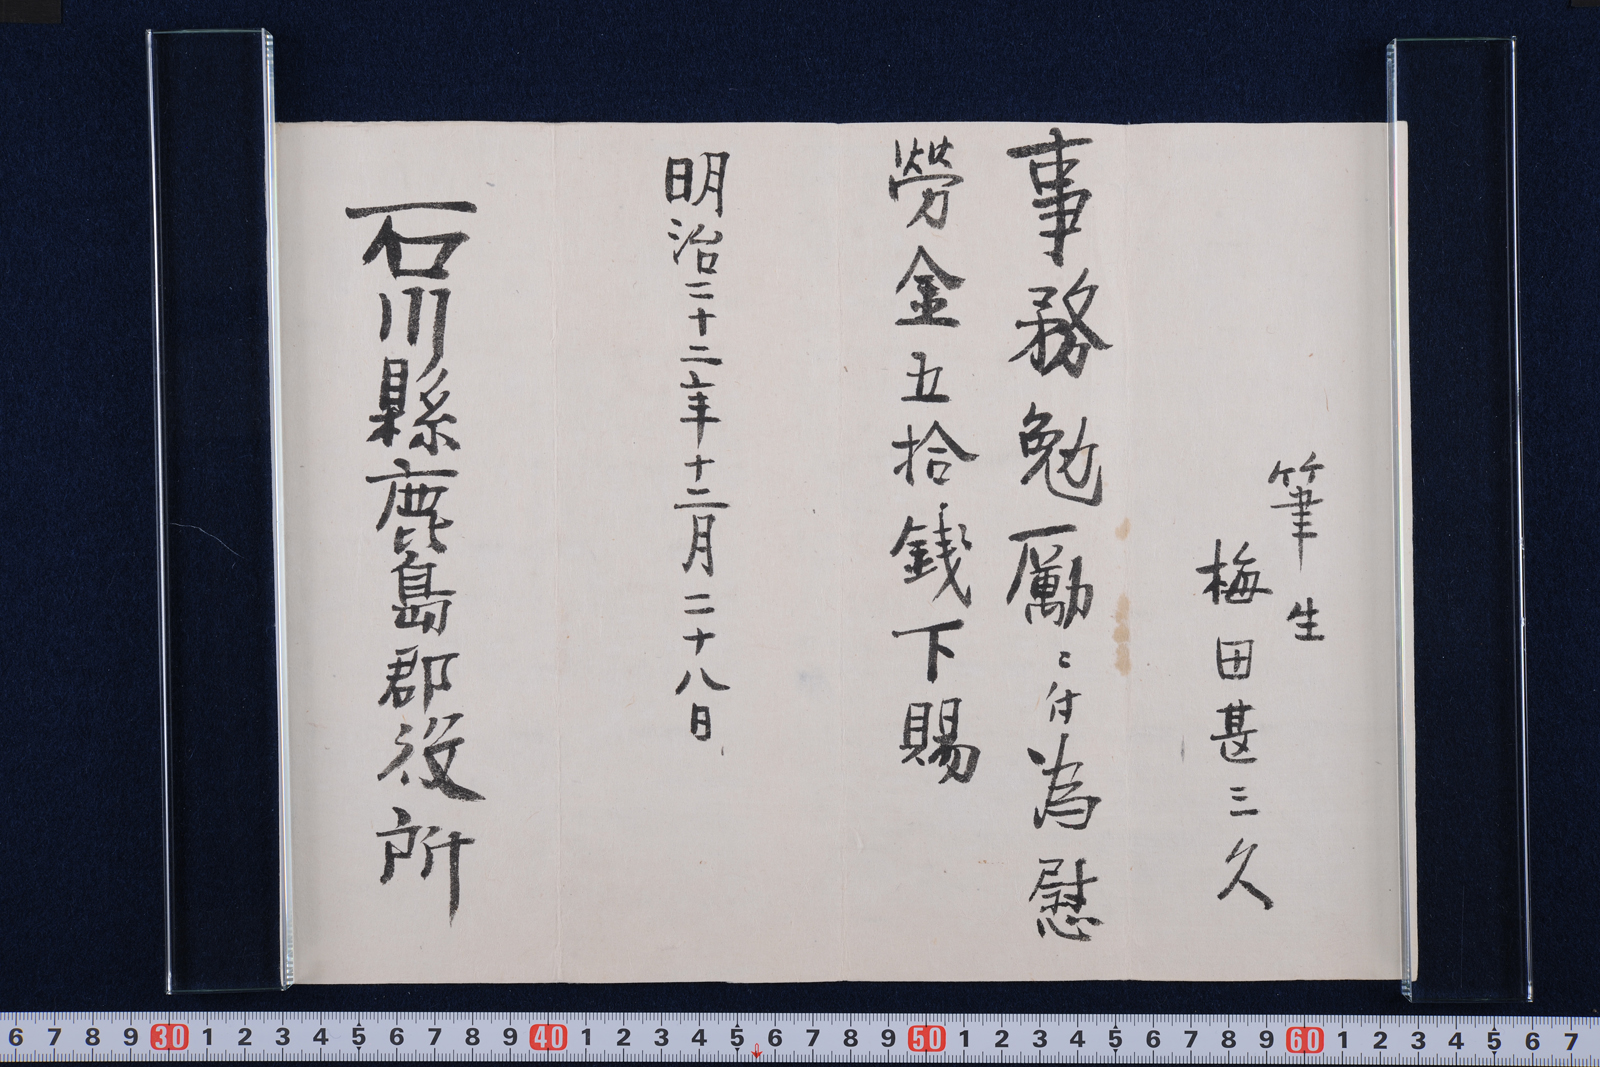 筆生
梅田甚三久
事務勉励ニ付為慰
労金五拾銭下賜
明治二十二年十二月二十八日
石川縣鹿島郡役所
6 7 8 9 30 1 2 3 4 5 6 7 8 9 40 1 2 3 4 5 6 7 8 9 50 1 2 3 4 5 6 7 8 9 60 1 2 3 4 5 6 7